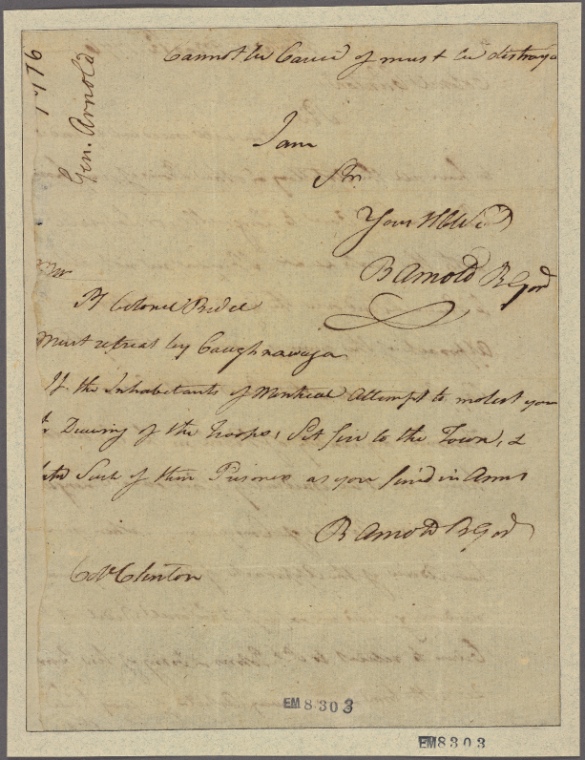 1776
Gen. Arnold
Cannot be Carried of must be destroy
I am
Sir
Your Hble
B Arnold B Gen
Colonel Bedel
Must retreat by Caughnawaga
If the Inhabitants of Montreal Attempt to molest you
of the Troops, Set fire to the Town, &
Such of them Prisoners as you find in Arms
B Arnold B Gen
Clinton
EM8303
EM8303